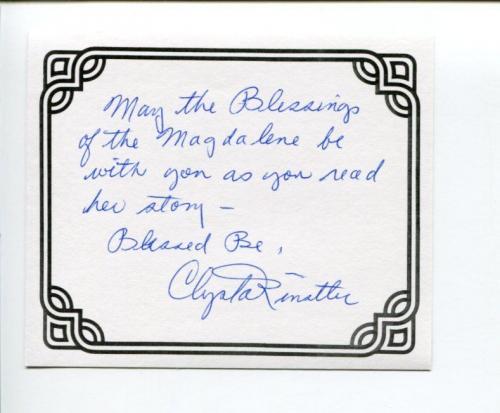 May the Blessings
of the Magdalene be
with you as you read
her story –
Blessed Be,
Clysta Kinstler